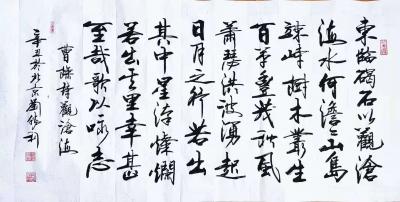 東臨碣石以觀滄
海水何澹々山島
竦峙樹木叢生
百草豐茂秋風
蕭瑟洪波湧起
日月之行若出
其中星漢燦爛
若出其里幸甚
至哉歌以詠志
曹操詩觀滄海
辛丑於北京